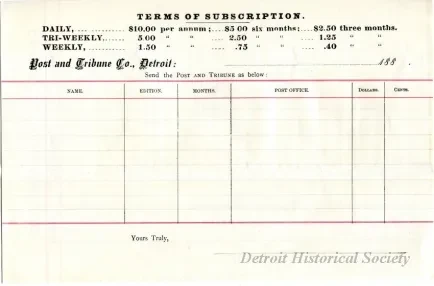 TERMS OF SUBSCRIPTION.
DAILY, ............... $10.00 per annum;....$5 00 six months;....$2.50 three months.
TRI-WEEKLY,...... 5 00 " " .... 2.50 " " .... 1.25 " "
WEEKLY, ........... 1.50 " " .... .75 " " .... .40 " "
Post and Tribune Co., Detroit: ........................ 188 .
Send the POST AND TRIBUNE as below:
NAME. EDITION. MONTHS. POST OFFICE. DOLLARS. CENTS.
Yours Truly,
Detroit Historical Society